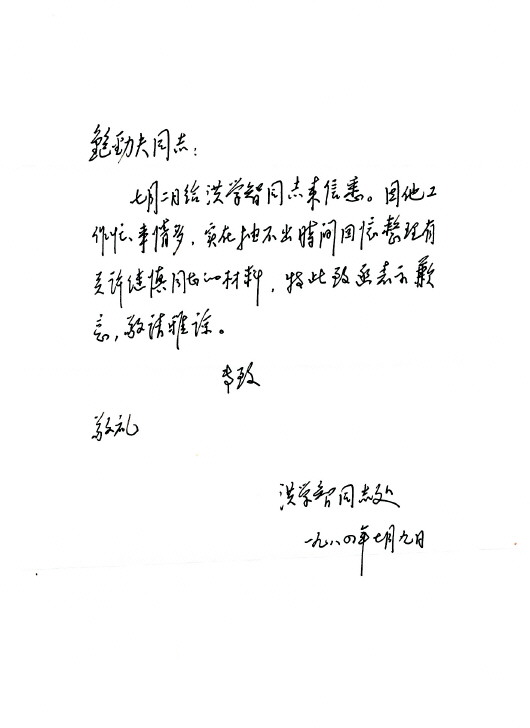 鲍劲夫同志：
七月二日给洪学智同志来信悉。因他工
作忙、事情多，实在抽不出时间回信整理有
关许继慎同志的材料，特此致函表示歉
意，敬请雅谅。
专致
敬礼
洪学智同志处
一九八四年七月九日